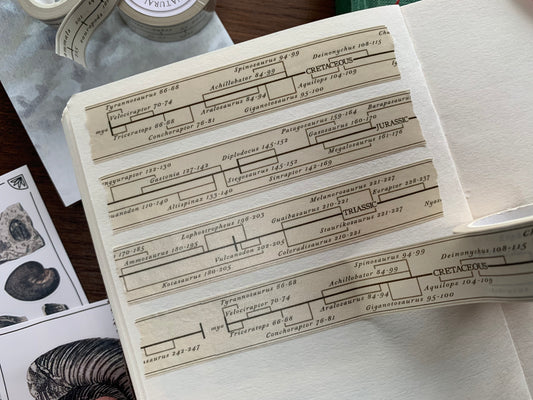 NATURAL
Spinosaurus 94-99
Deinonychus 108-115
Tyrannosaurus 66-68
Achillobator 84-99
CRETACEOUS
Velociraptor 70-74
mya
Aralosaurus 84-94
Aquilops 104-109
Triceratops 66-68
Giganotosaurus 95-100
Conchoraptor 76-81
Patagosaurus 159-164
Diplodocus 145-152
Gasosaurus 160-170
JURASSIC
Gastonia 127-142
Stegosaurus 145-152
Megalosaurus 161-176
Altispinax 133-140
Sinraptor 142-169
Melanorosaurus 221-227
Eoraptor 228-237
Lophostropheus 196-203
Guaibasaurus 210-221
TRIASSIC
Ammosaurus 180-195
Vulcanodon 202-205
Staurikosaurus 221-227
Kotasaurus 180-205
Coloradisaurus 210-221
Spinosaurus 94-99
Deinonychus 108-115
Tyrannosaurus 66-68
Achillobator 84-99
CRETACEOUS
Velociraptor 70-74
mya
Aralosaurus 84-94
Aquilops 104-109
Triceratops 66-68
Giganotosaurus 95-100
Conchoraptor 76-81
242-247